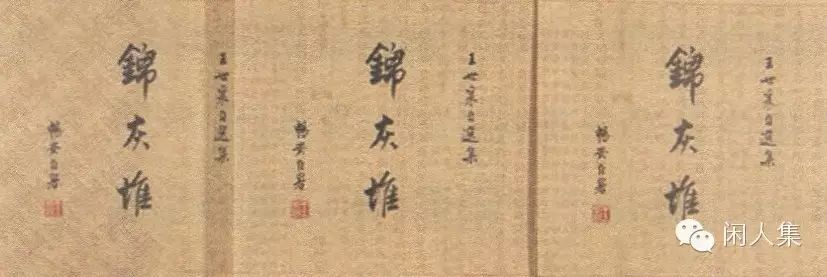 王世襄自選集
錦灰堆
暢安自署
王世襄自選集
錦灰堆
暢安自署
王世襄自選集
錦灰堆
暢安自署
闲人集